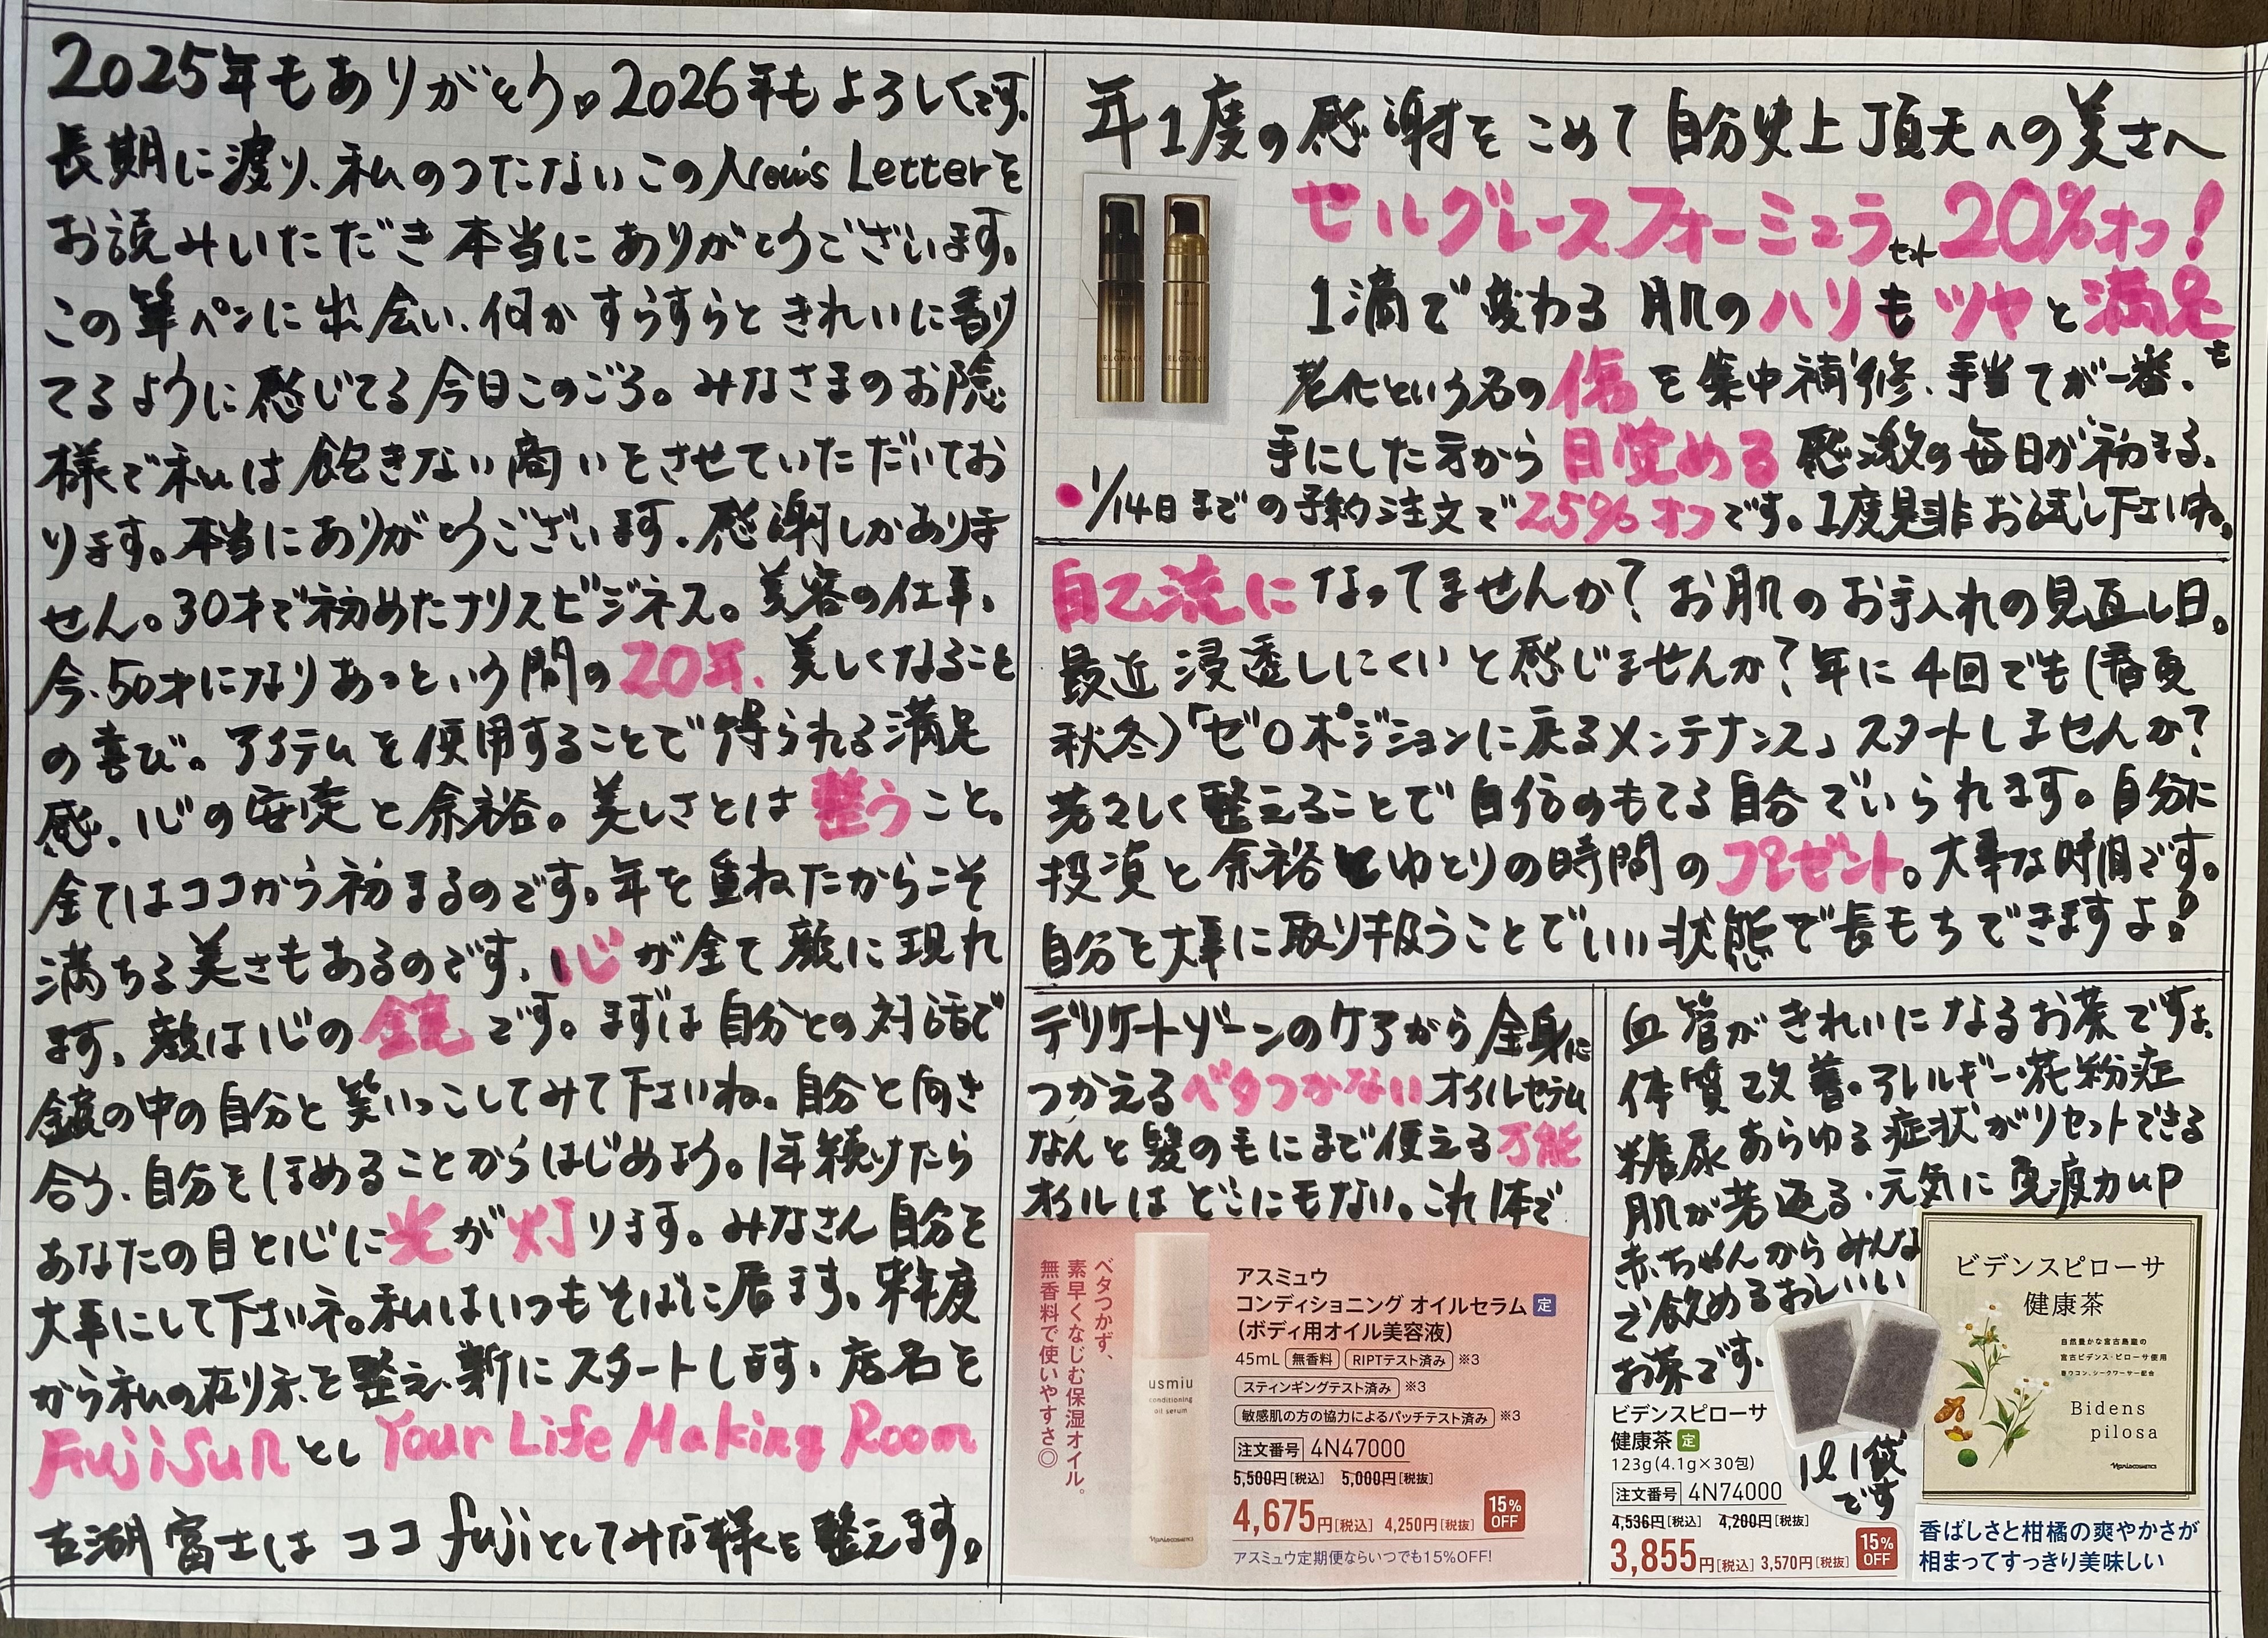 2025年もありがとう。2026年もよろしくです。
長期に渡り、私のつたないこのNew's Letterを
お読みいただき本当にありがとうございます。
この筆ペンに出会い、何かすらすらときれいに書け
てるように感じてる今日このごろ。みなさまのお陰
様で私は飽きない商いをさせていただいてお
ります。本当にありがとうございます。感謝しかありま
せん。30才で初めたナリスビジネス。美容の仕事、
今、50才になりあっという間の20年、美しくなること
の喜び。アイテムを使用することで得られる満足
感、心の安定と余裕。美しさとは整うこと。
全てはココから初まるのです。年を重ねたからこそ
満ちる美さもあるのです、心が全て顔に現れ
ます、顔は心の鏡です。まずは自分との対話で
鏡の中の自分と笑いっこしてみて下さいね。自分と向き
合う、自分をほめることからはじめよう。1年続けたら
あなたの目と心に光が灯ります。みなさん自分を
大事にして下さいネ。私はいつもそばに居ます、来年度
から私の在り方を整え、新にスタートします、店名を
FujiSunとし Your Life Making Room
古湖富士はココfujiとしてみな様を整えます。
年1度の感謝をこめて自分史上頂天への美さへ
セルグレースフォーミュラセット20%オフ!
1滴で変わる肌のハリもツヤと満足も
老化という名の傷を集中補修、手当てが一番、
手にした方から目覚める感激の毎日が初まる、
●1/14日までの予約注文で25%オフです。1度是非お試し下さいね。
自己流になってませんか?お肌のお手入れの見直し日。
最近浸透しにくいと感じませんか?年に4回でも(春夏
秋冬)「ゼロポジションに戻るメンテナンス」スタートしませんか?
若々しく整えることで自信のもてる自分でいられます。自分に
投資と余裕とゆとりの時間のプレゼント。大事な時間です。
自分を大事に取り扱うことでいい状態で長もちできますよ!!
デリケートゾーンのケアから全身に
つかえるベタつかないオイルセラム
なんと髪の毛にまで使える万能
オイルはどこにもない。これ1本で
ベタつかず、
素早くなじむ保湿オイル。
無香料で使いやすさ◎
usmiu
conditioning
oil serum
アスミュウ
コンディショニング オイルセラム 定
(ボディ用オイル美容液)
45mL 無香料 RIPTテスト済み ※3
スティンギングテスト済み ※3
敏感肌の方の協力によるパッチテスト済み ※3
注文番号 4N47000
5,500円[税込] 5,000円[税抜]
4,675円[税込] 4,250円[税抜] 15%OFF
アスミュウ定期便ならいつでも15%OFF!
血管がきれいになるお茶ですよ。
体質改善。アレルギー・花粉症
糖尿あらゆる症状がリセットできる
肌が若返る・元気に免疫力up
赤ちゃんからみんな
で飲めるおいしいい
お茶です、
ビデンスピローサ
健康茶 定
123g(4.1g×30包)
注文番号 4N74000
4,536円[税込] 4,200円[税抜]
3,855円[税込] 3,570円[税抜] 15%OFF
1ℓ1袋
です
ビデンスピローサ
健康茶
自然豊かな宮古島産の
宮古ビデンス・ピローサ使用
春ウコン、シークワーサー配合
Bidens
pilosa
香ばしさと柑橘の爽やかさが
相まってすっきり美味しい